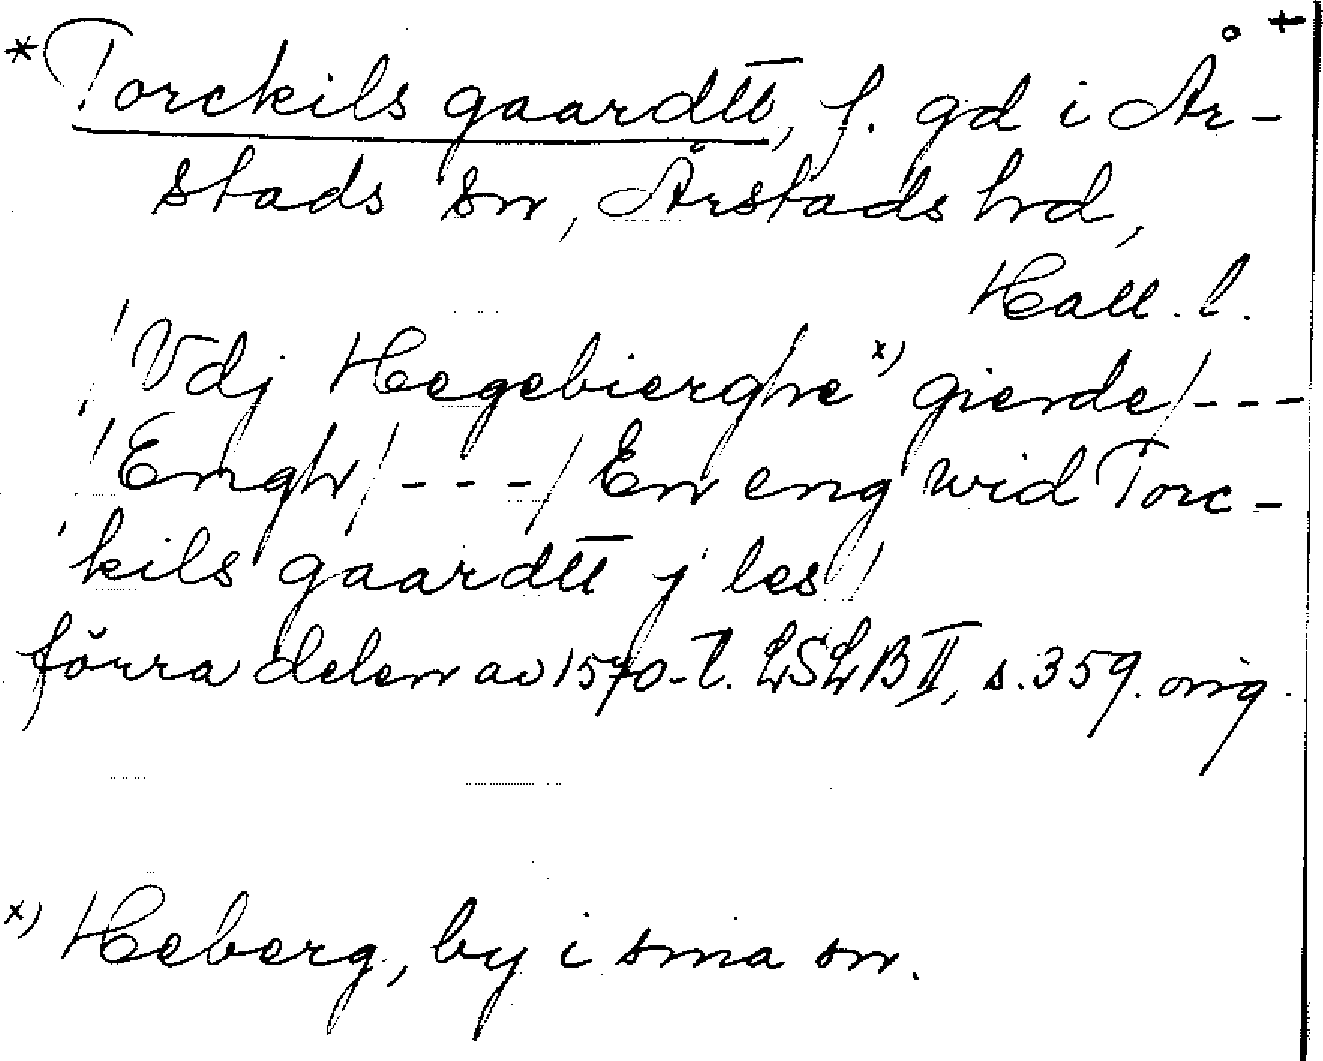 * Torckils gaardtt, f. gd i År-
stads sn, Årstads hd,
Hall. l.
/Vdj Hegebierghe x) gierde/---
/Engh/---/En eng wid Torc-
kils gaardtt j les/
förra delen av 1570-t. LSLB II, s. 359. orig.
x) Heberg, by i sma sn.